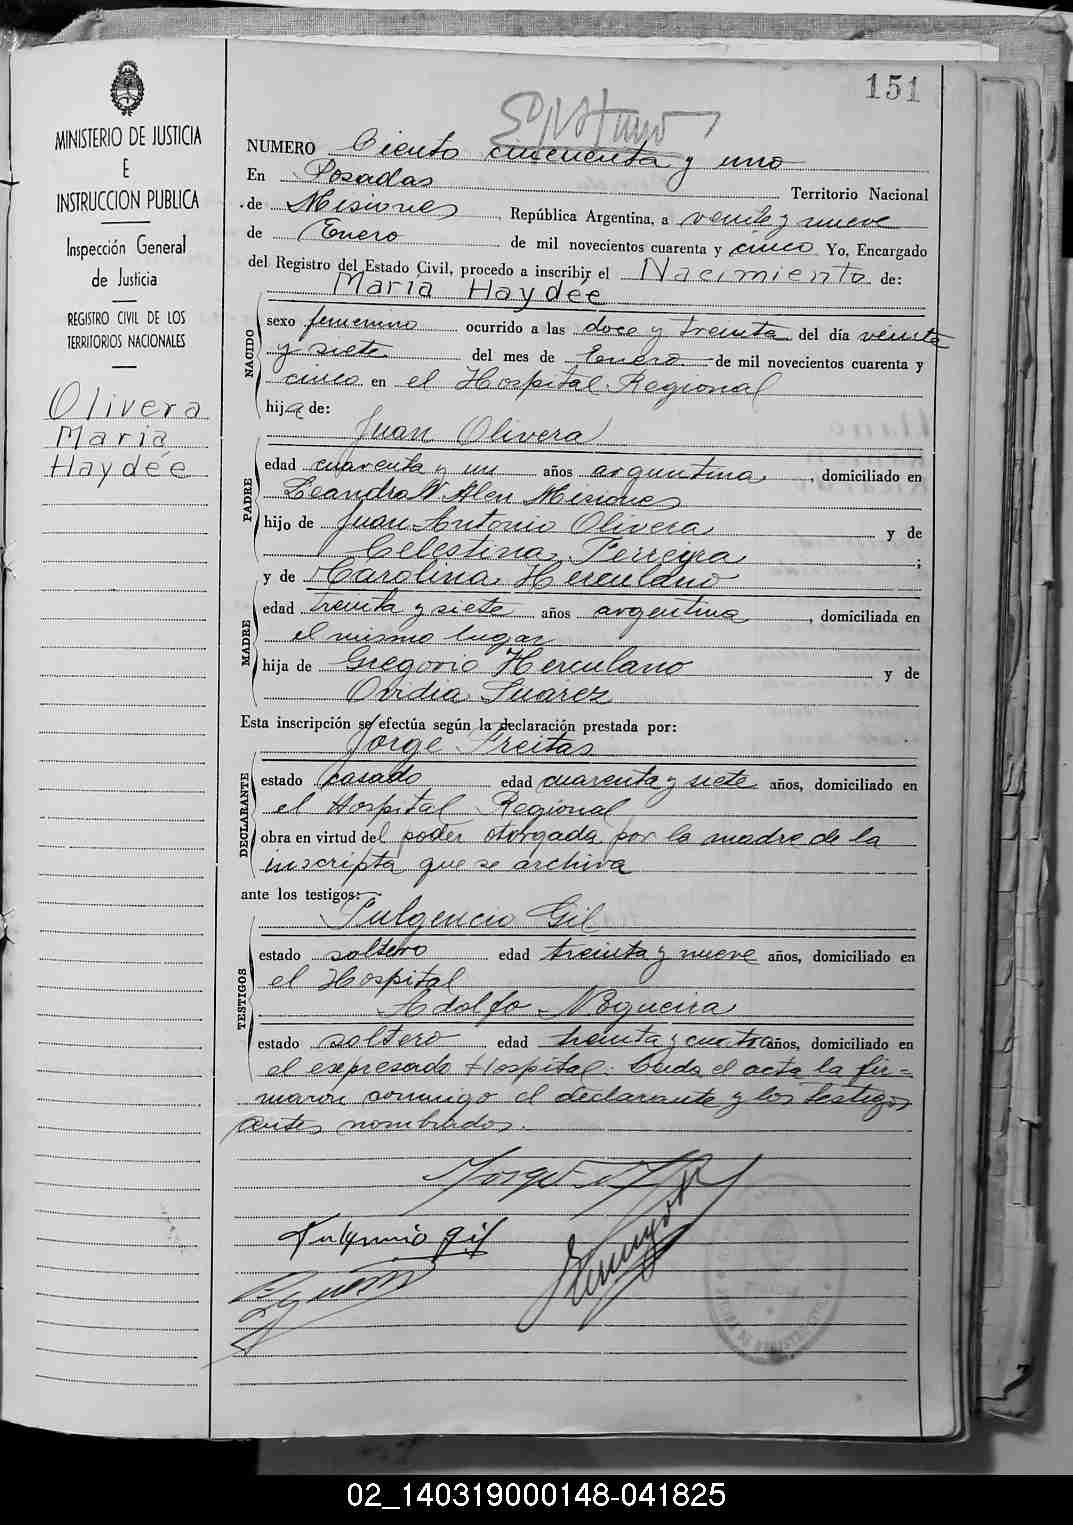 151
MINISTERIO DE JUSTICIA
E
INSTRUCCION PUBLICA
Inspección General
de Justicia
REGISTRO CIVIL DE LOS
TERRITORIOS NACIONALES
Olivera
Maria
Haydée
NUMERO Ciento cincuenta y uno
En Posadas Territorio Nacional
de Misiones, República Argentina, a veinte y nueve
de Enero de mil novecientos cuarenta y cinco Yo, Encargado
del Registro del Estado Civil, procedo a inscribir el Nacimiento de:
Maria Haydée
NACIDO
sexo femenino ocurrido a las doce y treinta del día veinte
y siete del mes de Enero de mil novecientos cuarenta y
cinco en el Hospital Regional
hija de:
Juan Olivera
PADRE
edad cuarenta y un años argentina, domiciliado en
Leandro N Alen Misiones
hijo de Juan Antonio Olivera y de
Celestina Ferreyra;
y de Carolina Herculano
MADRE
edad treinta y siete años argentina, domiciliada en
el mismo lugar
hija de Gregorio Herculano y de
Ovidia Suarez
Esta inscripción se efectúa según la declaración prestada por:
Jorge Freitas
DECLARANTE
estado casado edad cuarenta y siete años, domiciliado en
el Hospital Regional
obra en virtud del poder otorgada por la madre de la
inscripta que se archiva
ante los testigos:
Fulgencio Gil
TESTIGOS
estado soltero edad treinta y nueve años, domiciliado en
el Hospital
Adolfo Nogueira
estado soltero edad treinta y cuatro años, domiciliado en
el expresado Hospital. Leida el acta la fir=
maron conmigo el declarante y los testigos
antes nombrados.
Fulgencio Gil
02_140319000148-041825